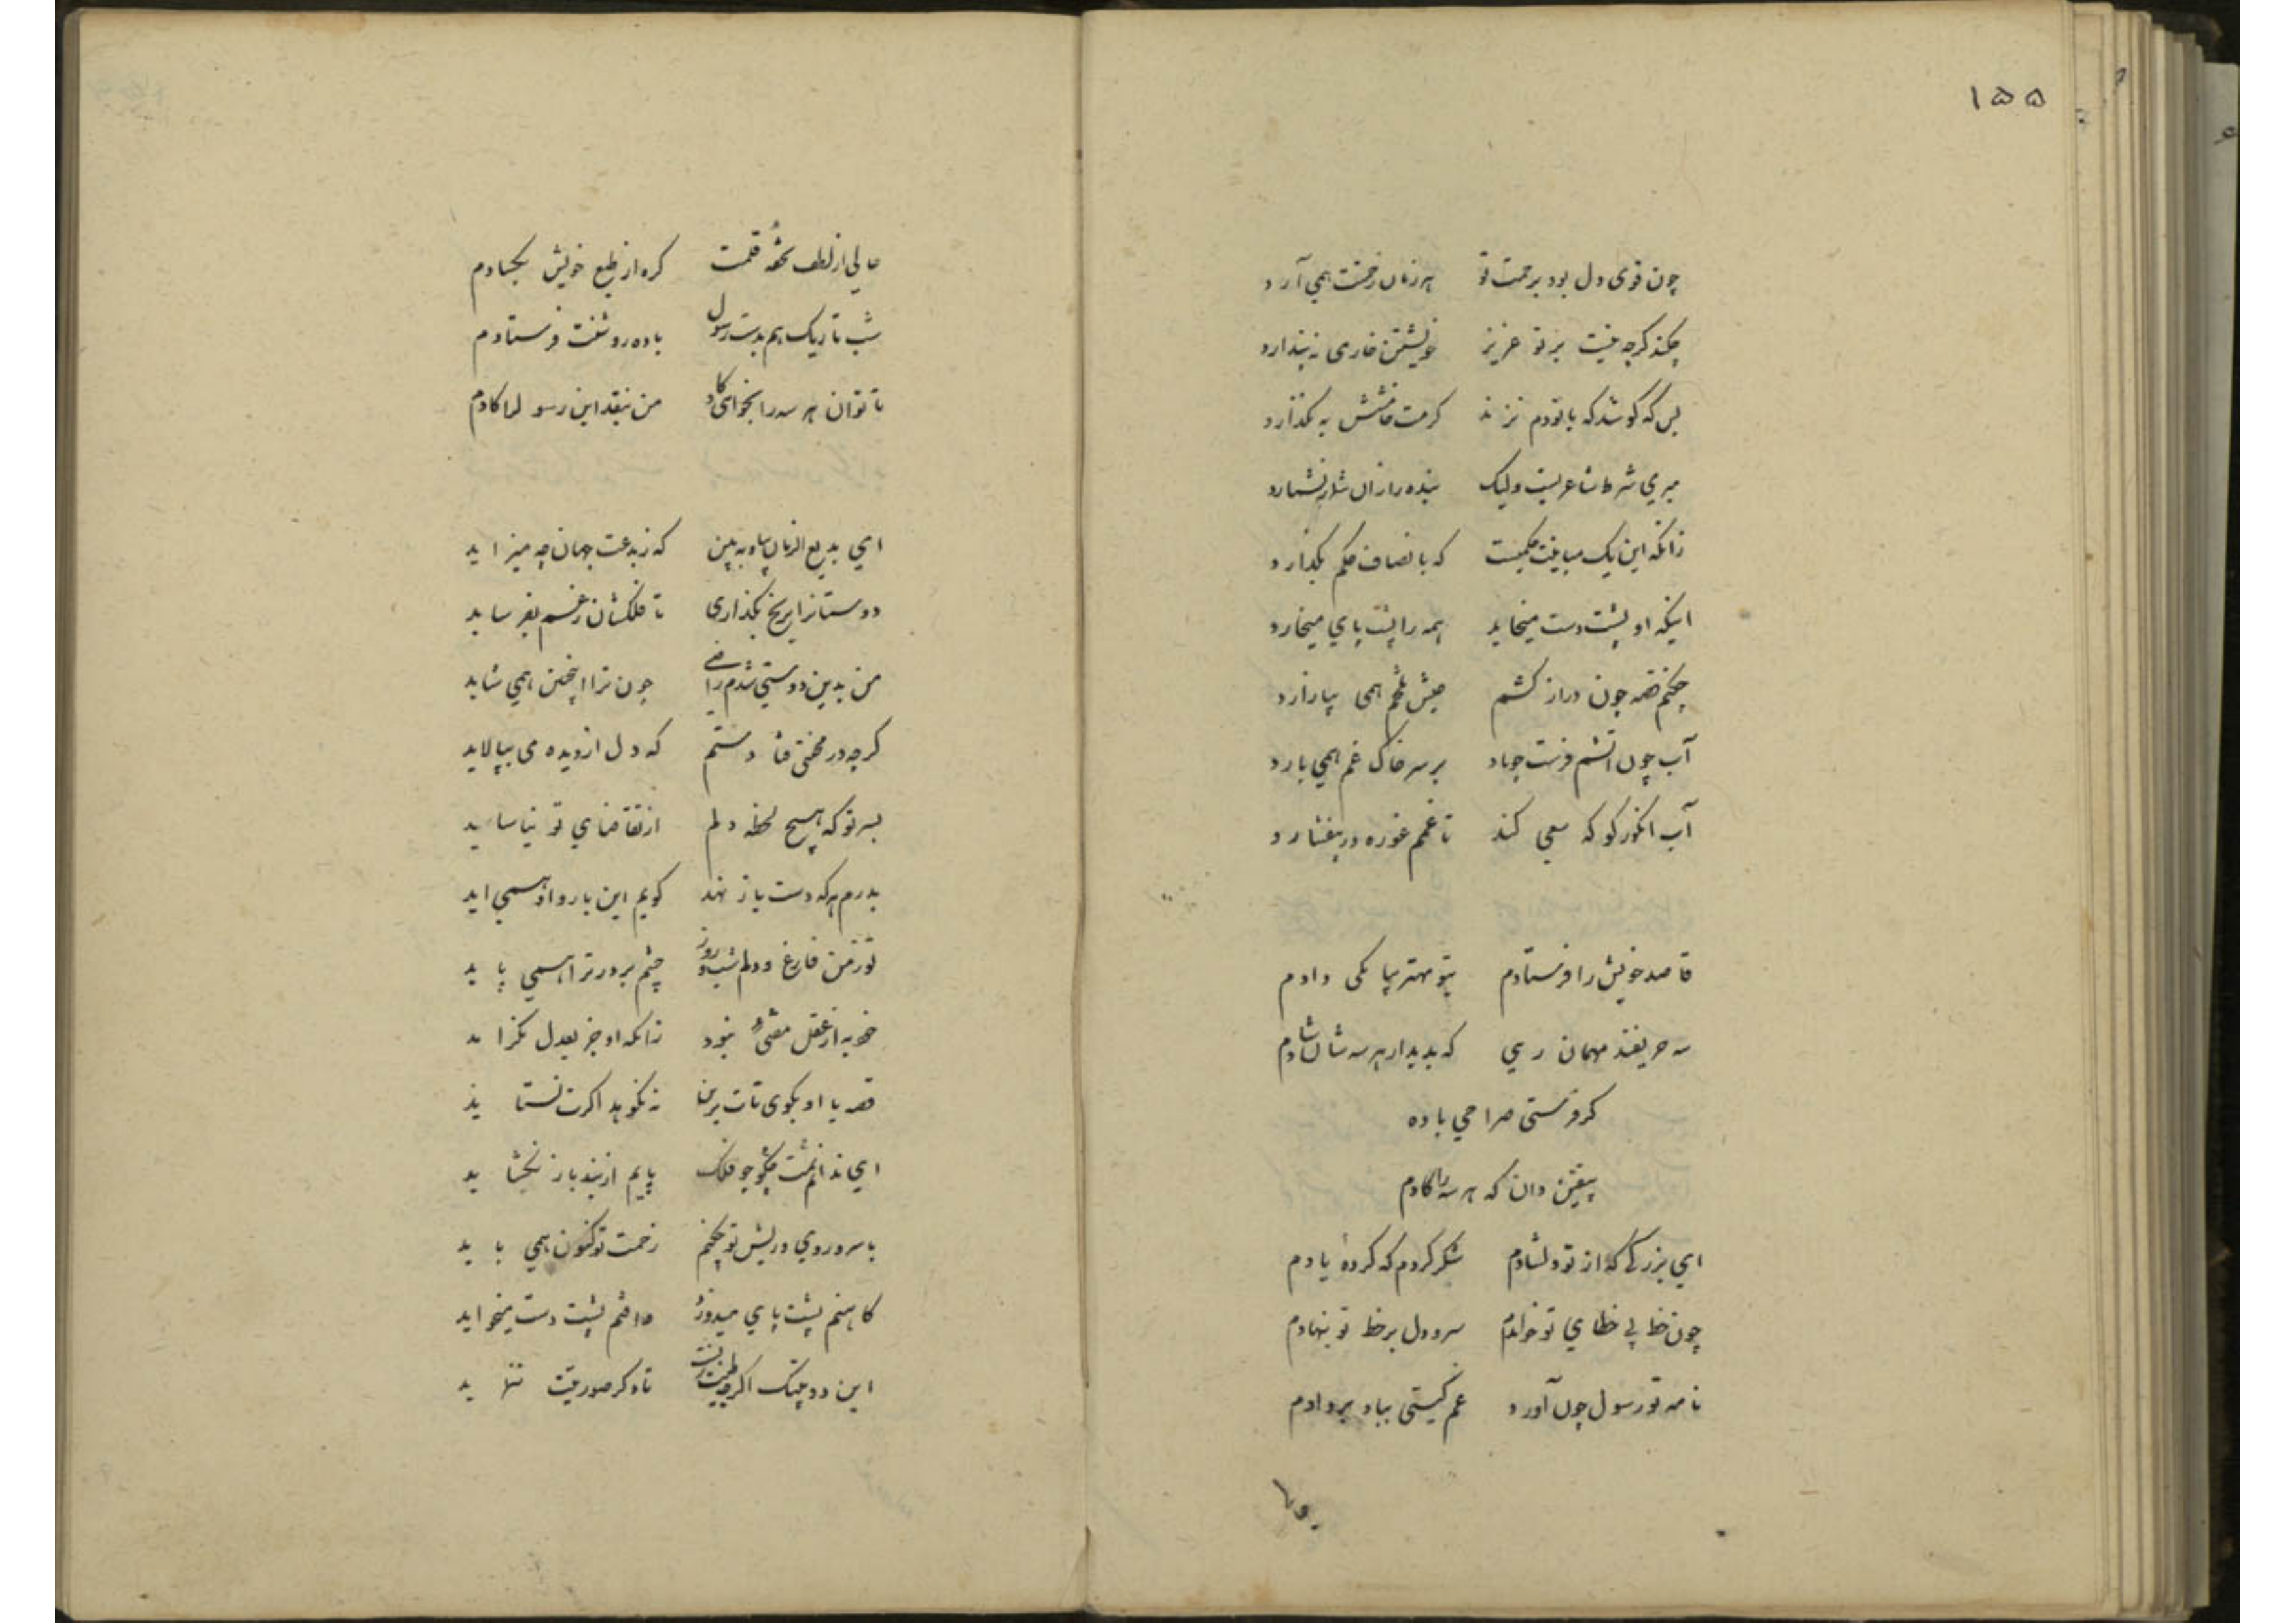 ۱۵۵
چون قوی دل بود برحمت تو هر زمان زحمت همی آرد
چکند گرچه نیست بر تو عزیز خویشتن خاری نه پندارد
بس که کوشد که با تو دم نزند کرمت خامشش به نگذارد
میری شرط شاعریست ولیک بنده را زان شمار نشمارد
زانکه این یک میانیت حکمیست که بانصاف حکم بگذارد
اینکه او پشت دست میخاید همه را پشت پای میخارد
چکنم قصه چون دراز کشم عیش تلخم همی بیازارد
آب چون آتشم فرست چو باد بر سر خاک غم همی بارد
آب انگور کو که سعی کند تا غمم غوره در نیفشارد
قاصد خویش را فرستادم بتو مهتر پیامکی دادم
سه حریفند مهمان رهی که بدیدار هر سه شان شادم
گر فرستی صراحی باده
بیقین دان که هر سه را گادم
ای بزرگی که از تو دلشادم شکر کردم که کردهٔ یادم
چون خط بی خطای تو خواندم سر و دل بر خط تو بنهادم
نامه تو رسول چون آورد غم گیتی بباد بر دادم
حالی از لطف تحفهٔ قلمت گره از طبع خویش بگشادم
شب تاریک هم بدست رسول باده روشنت فرستادم
تا توان هر سه را بخواهی گاد من بنقد این رسول را گادم
ای بدیع الزمان بیا و ببین که ز بدعت جهان چه میزاید
دوستانرا برنج بگذاری تا فلکشان بغم بفرساید
من بدین دوستی شدم راضی چون ترا اینچنین همی شاید
گرچه در محنتی فتادستم که دل از دیده می بپالاید
بسر تو که هیچ لحظه دلم از تقاضای تو نیاساید
بدرم هر که دست باز نهد گویم این بار و او همی اید
تو ز من فارغ و دلم شب و روز چشم بر در ترا همی پاید
خود به از عقل مفتی نبود زانکه او جز بعدل نگراید
قصه با او بگوی تات برین نه نکوهد اگرت نستاید
ای ندانمت چگو چو فلک پایم از بند باز نگشاید
با سر و روی و ریش تو چکنم زحمت تو کنون همی باید
کاهنم پشت پای میدوزد وافتم پشت دست میخواید
این دو پلیتک اگرچه طیبت تست تا دگر صورتیت ننماید